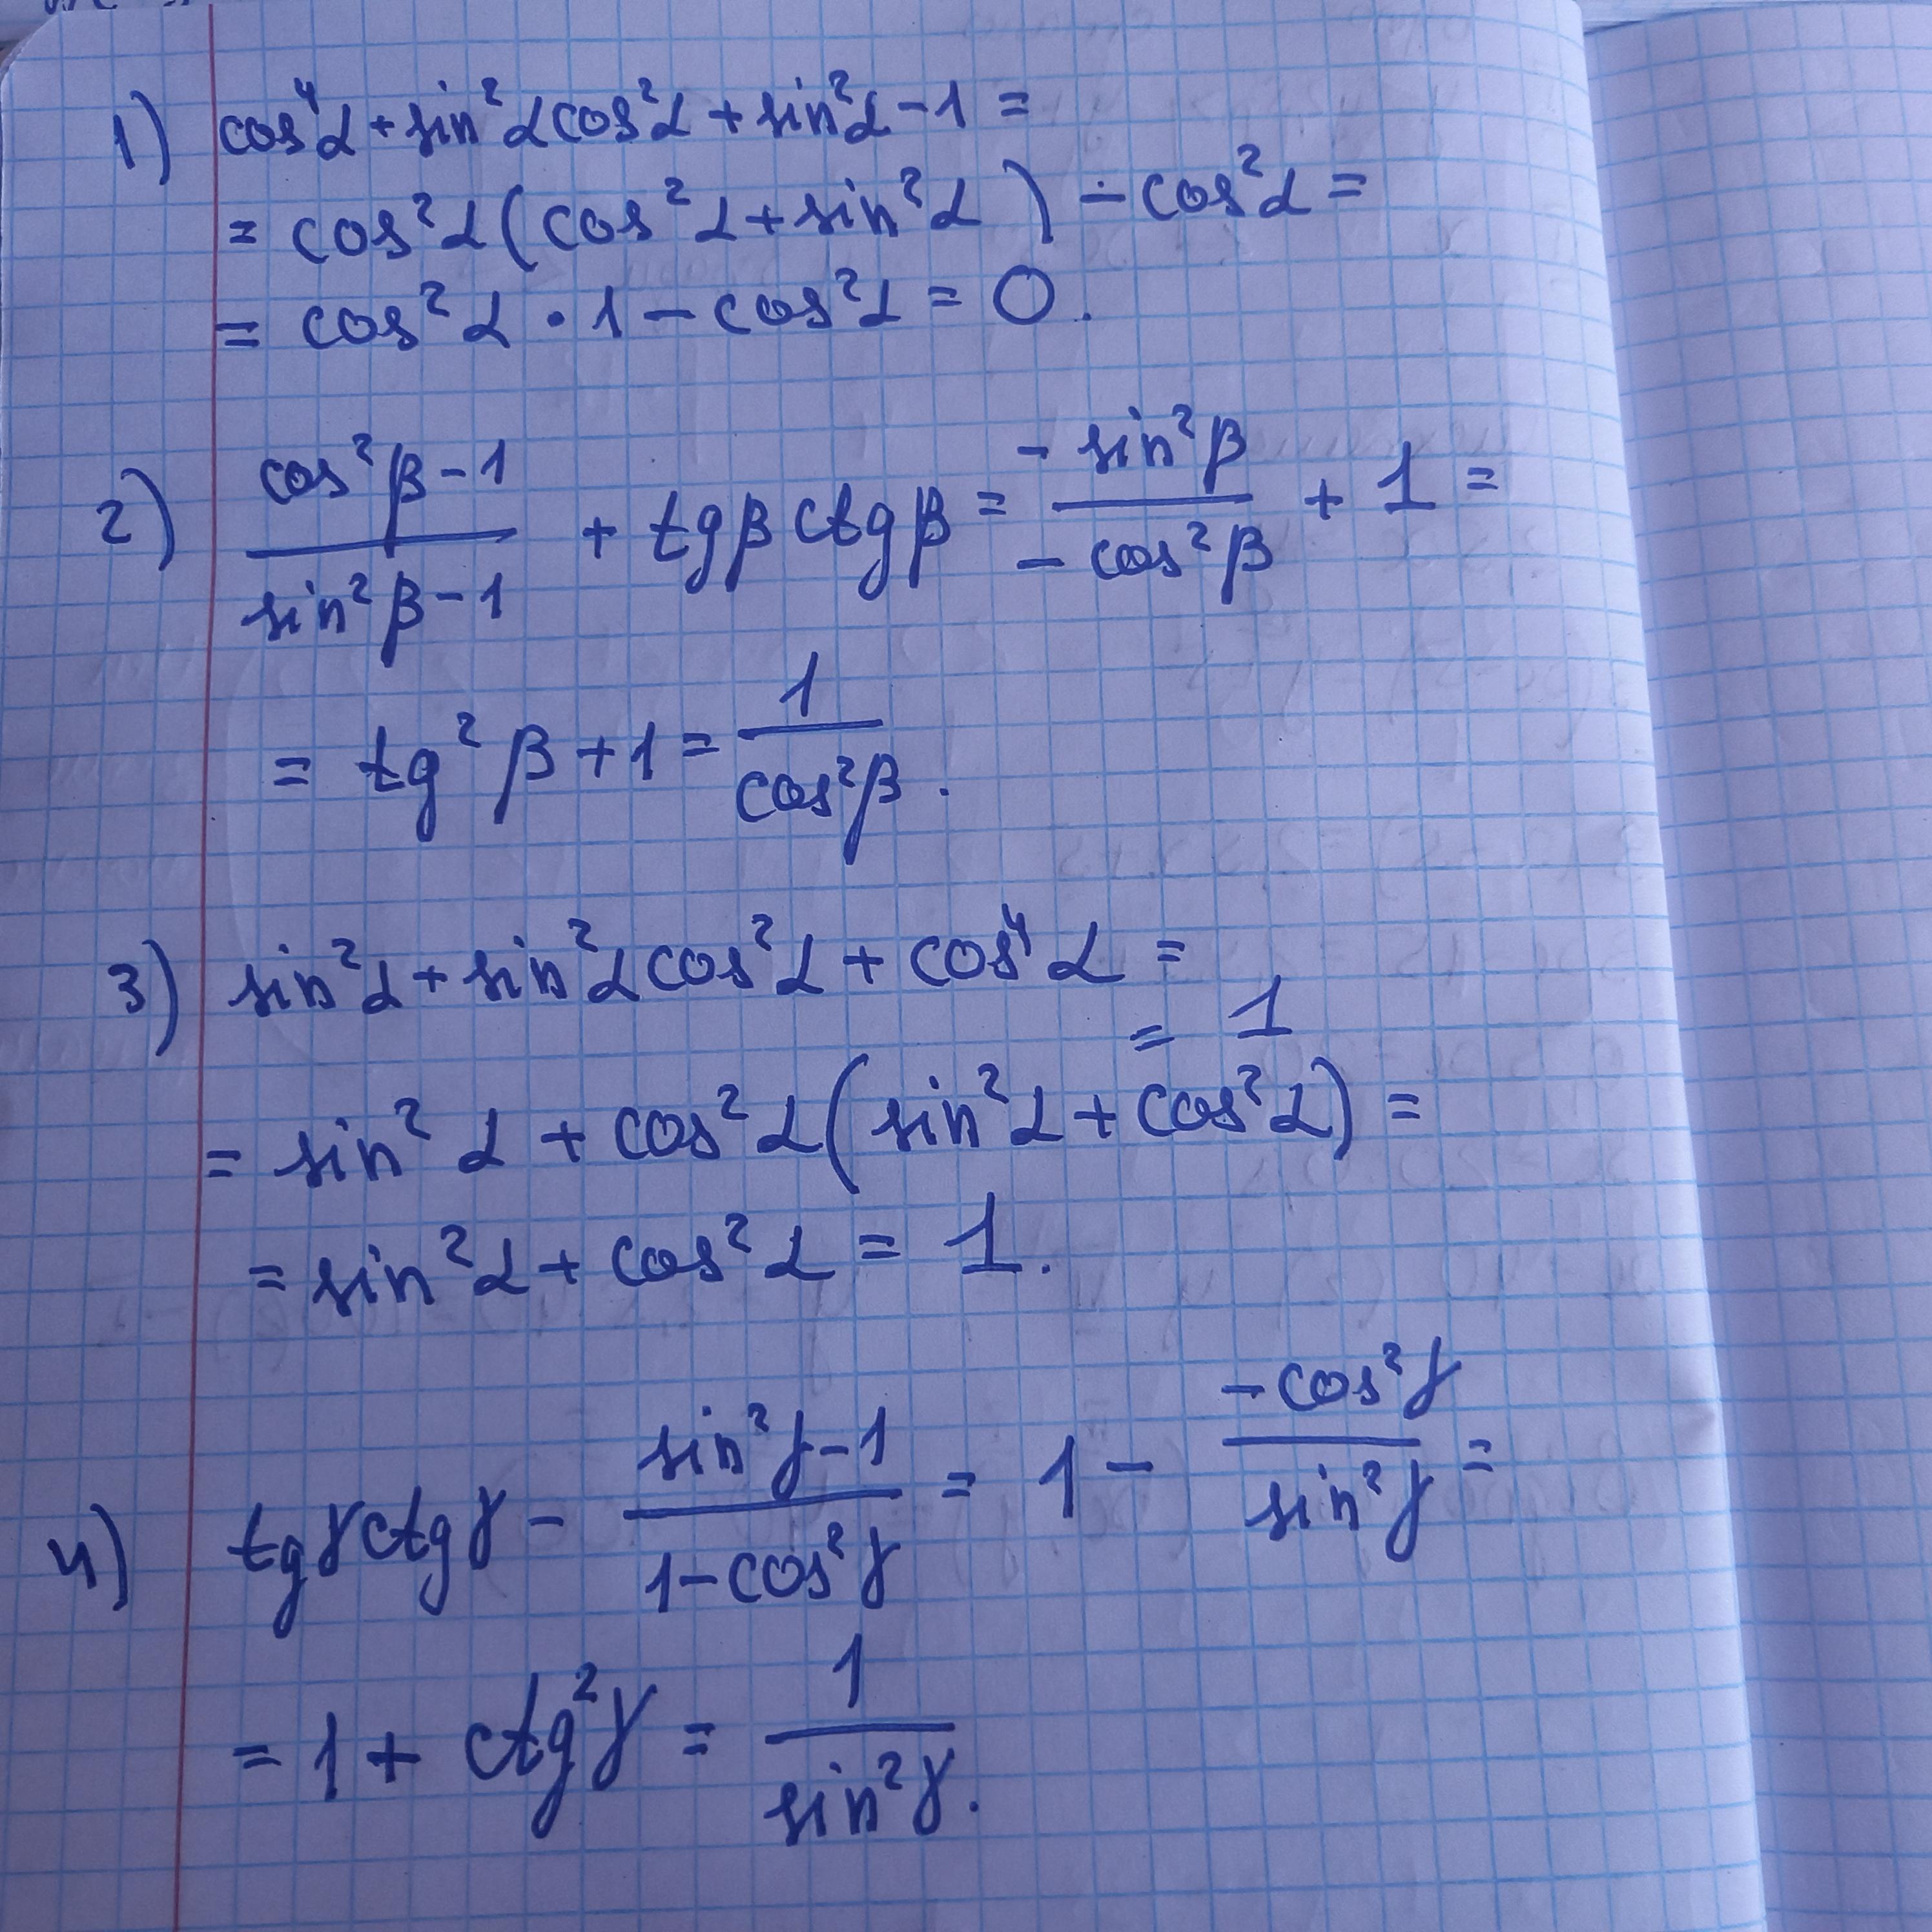 1) cos⁴α + sin²α cos²α + sin²α − 1 =
= cos²α (cos²α + sin²α) − cos²α =
= cos²α · 1 − cos²α = 0.
2) (cos²β − 1)/(sin²β − 1) + tgβ ctgβ = (− sin²β)/(− cos²β) + 1 =
= tg²β + 1 = 1/cos²β.
3) sin²α + sin²α cos²α + cos⁴α =
= 1
= sin²α + cos²α (sin²α + cos²α) =
= sin²α + cos²α = 1.
4) tgγ ctgγ − (sin²γ − 1)/(1 − cos²γ) = 1 − (−cos²γ)/(sin²γ) =
= 1 + ctg²γ = 1/sin²γ.